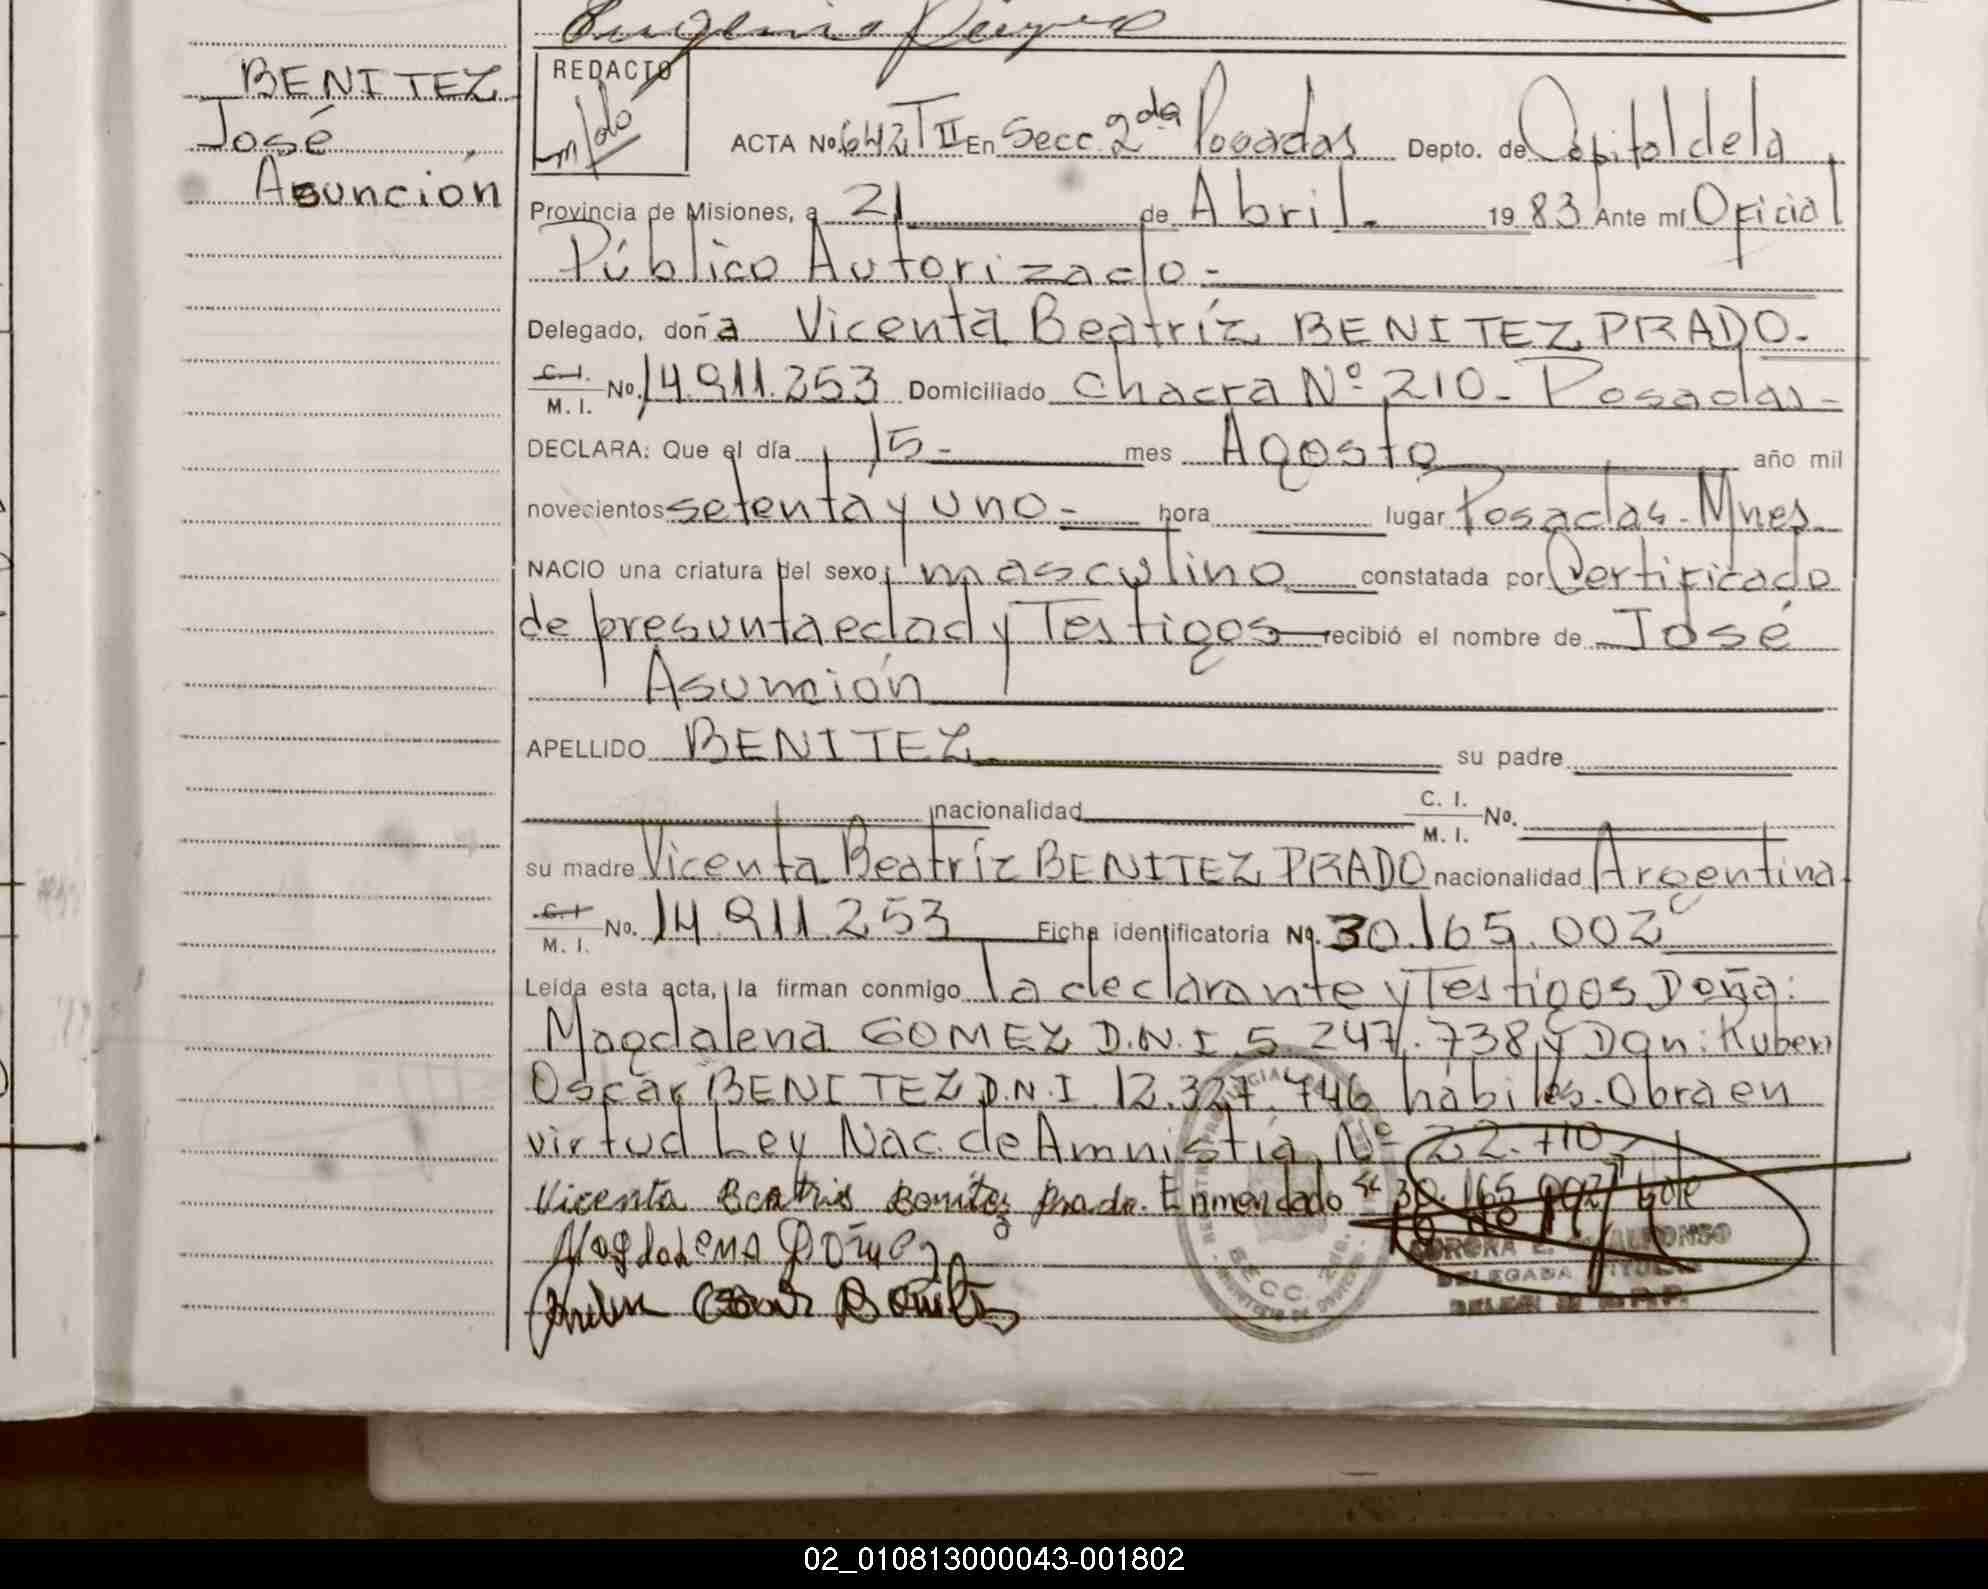 Eugenio
BENITEZ
José
Asuncion
REDACTO
ACTA No. 642 T II En Secc. 2da Posadas Depto. de Capital de la
Provincia de Misiones, a 21 de Abril. 1983 Ante mí Oficial
Público Autorizado -
Delegado, doña Vicenta Beatríz BENITEZ PRADO.
C.I. M. I. No. 14.911.253 Domiciliado Chacra Nº 210 - Posadas -
DECLARA: Que el día 15 - mes Agosto año mil
novecientos setenta y uno - hora lugar Posadas - Mnes.
NACIO una criatura del sexo masculino constatada por Certificado
de presunta edad y Testigos recibió el nombre de José
Asunción
APELLIDO BENITEZ su padre
nacionalidad C. I. M. I. No.
su madre Vicenta Beatríz BENITEZ PRADO nacionalidad Argentina
C.I. M. I. No. 14.911.253 Ficha identificatoria No. 30.165.002
Leída esta acta, la firman conmigo la declarante y Testigos Doña:
Magdalena GOMEZ D.N.I 5.247.738 y Don: Ruben
Oscar BENITEZ D.N.I. 12.327.746 hábiles. Obra en
virtud Ley Nac. de Amnistía Nº 22.710
Vicenta Beatris Benitez Prado. Enmendado 30.165.002 Vale
Magdalena Gomez
Ruben Oscar Benitez
SECC. 2da.
ALFONSO
DELEGADA TITULAR
02_010813000043-001802